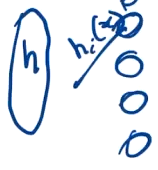 h
h_i(x)